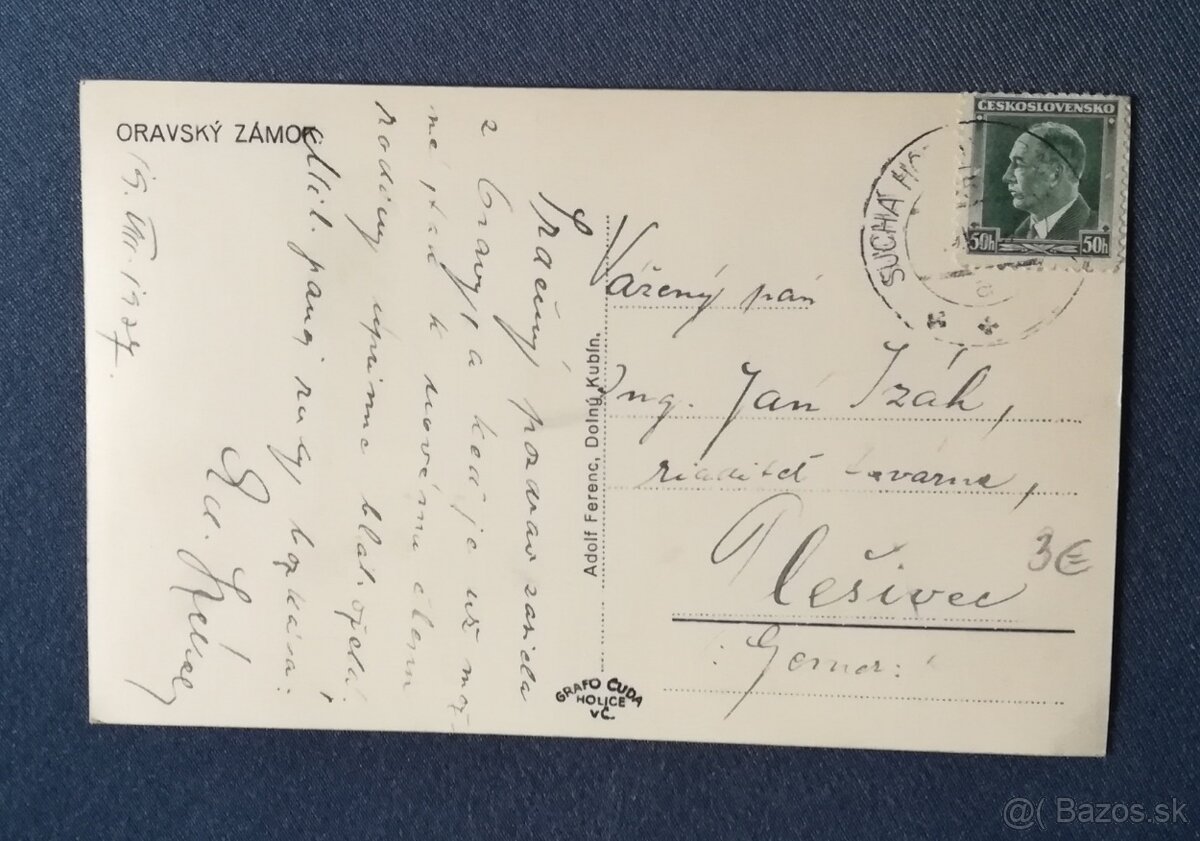 ORAVSKÝ ZÁMOK
15. VIII. 1937.
Srdečný pozdrav zasiela
z Oravy, a keď je už mož-
né, tak k novému členu
rodiny úprimne blah. ojedná
Mil. panej ruky bozkáva:
Ed.
Adolf Ferenc, Dolný Kubín.
GRAFO ČUDA
HOLICE
VČ.
ČESKOSLOVENSKO
50h 50h
SUCHÁ H
Vážený pán
Ing. Ján Izák,
riaditeľ továrne,
Plešivec
Gemer:
3€
@( Bazos.sk